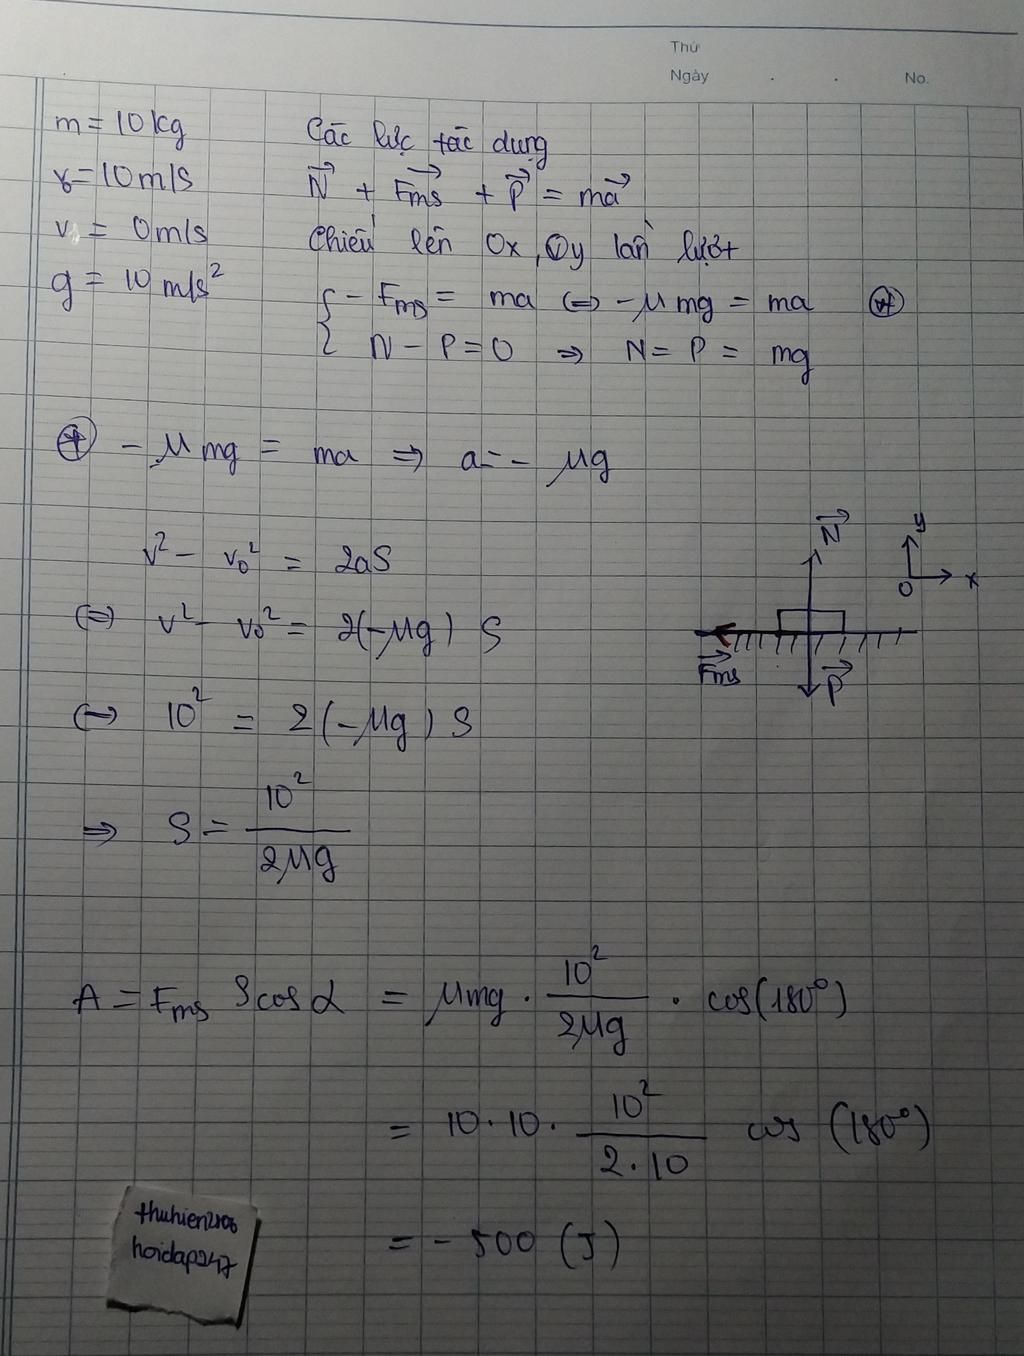 Thứ
Ngày . . No.
m = 10 kg
v₀ = 10 m/s
v = 0 m/s
g = 10 m/s²
Các lực tác dụng
N⃗ + F⃗ms + P⃗ = ma⃗
Chiếu lên Ox, Oy lần lượt
{ - Fms = ma ⇔ - μmg = ma (*)
N - P = 0 ⇒ N = P = mg
(*) - μmg = ma ⇒ a = - μg
v² - v₀² = 2aS
⇔ v² - v₀² = 2(-μg) S
⇔ 10² = 2(-μg) S
⇒ S = 10² / 2μg
N⃗
y
O x
F⃗ms
P⃗
A = Fms S cos α = μmg . 10² / 2μg . cos(180°)
= 10 . 10 . 10² / 2 . 10 cos (180°)
= - 500 (J)
thuhien2106
hoidap247